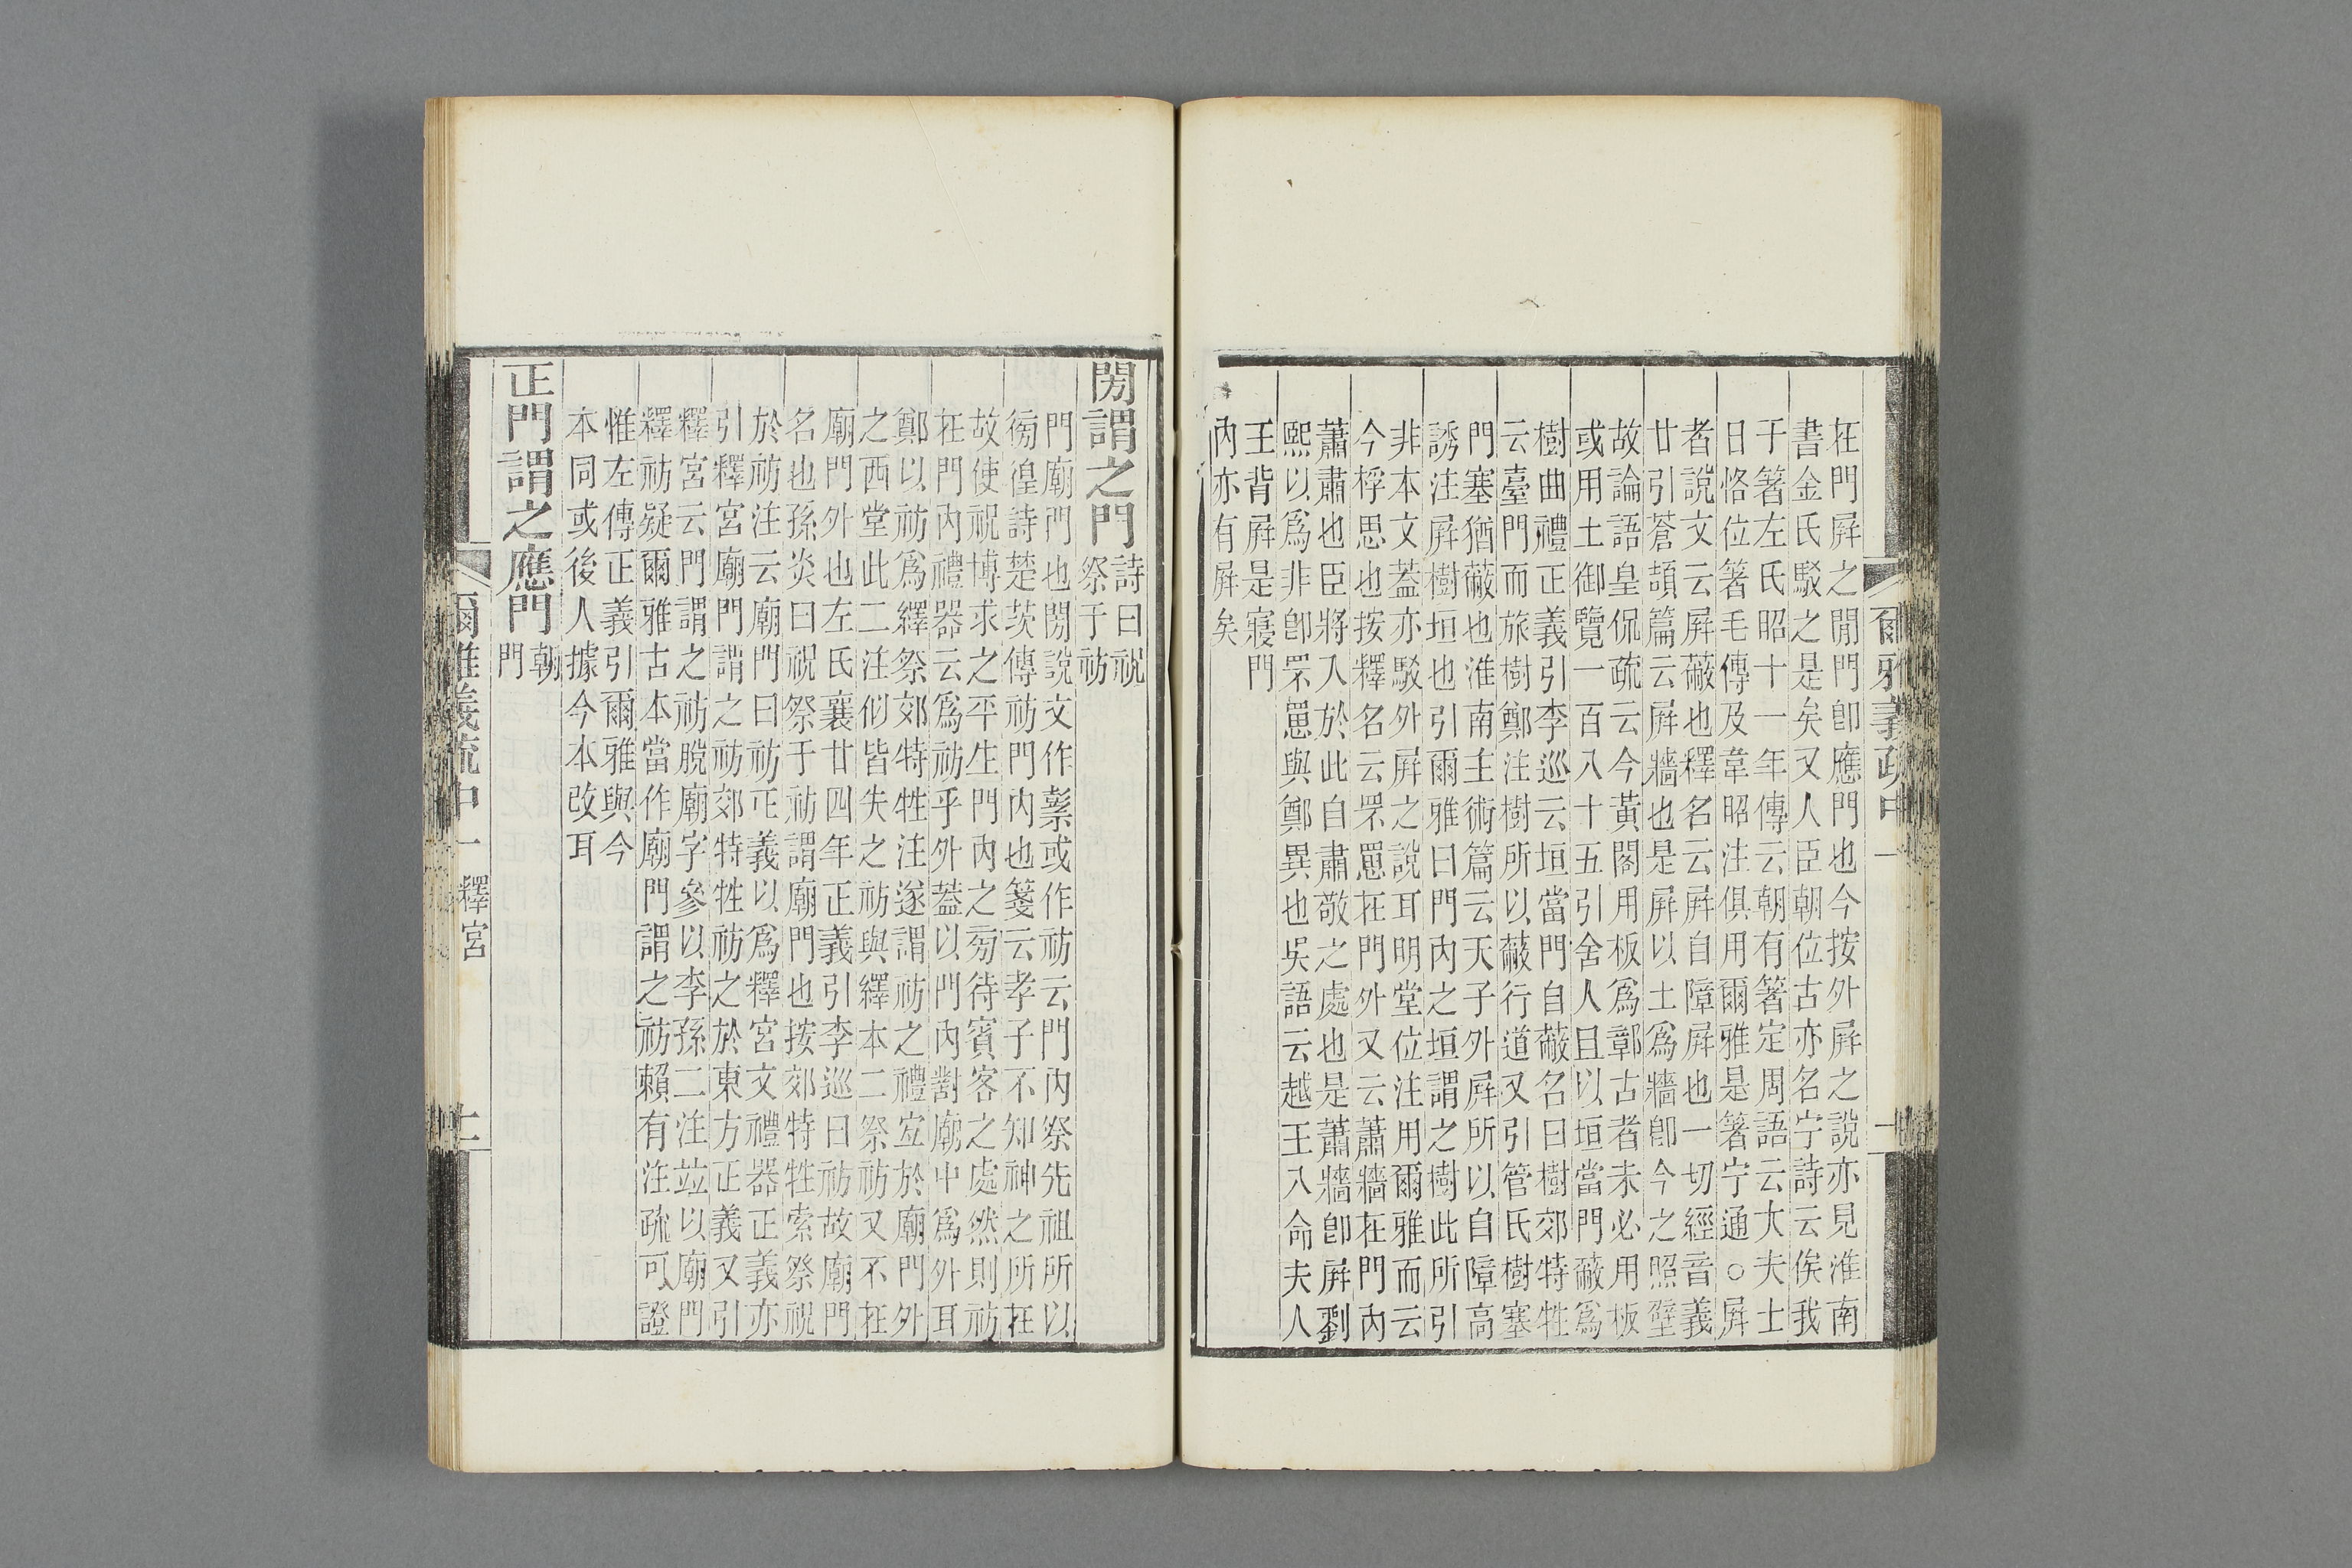 在門屏之閒門卽應門也今按外屏之說亦見淮南
書金氏駁之是矣又人臣朝位古亦名宁詩云俟我
于箸左氏昭十一年傳云朝有箸定周語云大夫士
日恪位箸毛傳及韋昭注俱用爾雅是箸宁通○屏
者說文云屏蔽也釋名云屏自障屏也一切經音義
廿引蒼頡篇云屏牆也是屏以土爲牆卽今之照壁
故論語皇侃疏云今黃閣用板爲鄣古者未必用板
或用土御覽一百八十五引舍人且以垣當門蔽爲
樹曲禮正義引李巡云垣當門自蔽名曰樹郊特牲
云臺門而旅樹鄭注樹所以蔽行道又引管氏樹塞
門塞猶蔽也淮南主術篇云天子外屏所以自障高
誘注屏樹垣也引爾雅曰門內之垣謂之樹此所引
非本文葢亦駁外屏之說耳明堂位注用爾雅而云
今桴思也按釋名云罘罳在門外又云蕭牆在門內
蕭肅也臣將入於此自肅敬之處也是蕭牆卽屏劉
熙以爲非卽罘罳與鄭異也吳語云越王入命夫人
王背屏是寢門
內亦有屏矣
爾雅義疏中一
閍謂之門 詩曰祝
祭于祊
門廟門也閍說文作䰃或作祊云門內祭先祖所以
徬徨詩楚茨傳祊門內也箋云孝子不知神之所在
故使祝博求之平生門內之㫄待賓客之處然則祊
在門內禮器云爲祊乎外葢以門內對廟中爲外耳
鄭以祊爲繹祭郊特牲注遂謂祊之禮宜於廟門外
之西堂此二注似皆失之祊與繹本二祭祊又不在
廟門外也左氏襄廿四年正義引李巡曰祊故廟門
名也孫炎曰祝祭于祊謂廟門也按郊特牲索祭祝
於祊注云廟門曰祊正義以爲釋宮文禮器正義亦
引釋宮廟門謂之祊郊特牲祊之於東方正義又引
釋宮云門謂之祊脫廟字參以李孫二注竝以廟門
釋祊疑爾雅古本當作廟門謂之祊賴有注疏可證
惟左傳正義引爾雅與今
本同或後人據今本改耳
正門謂之應門 朝
門
爾雅義疏中一 釋宮